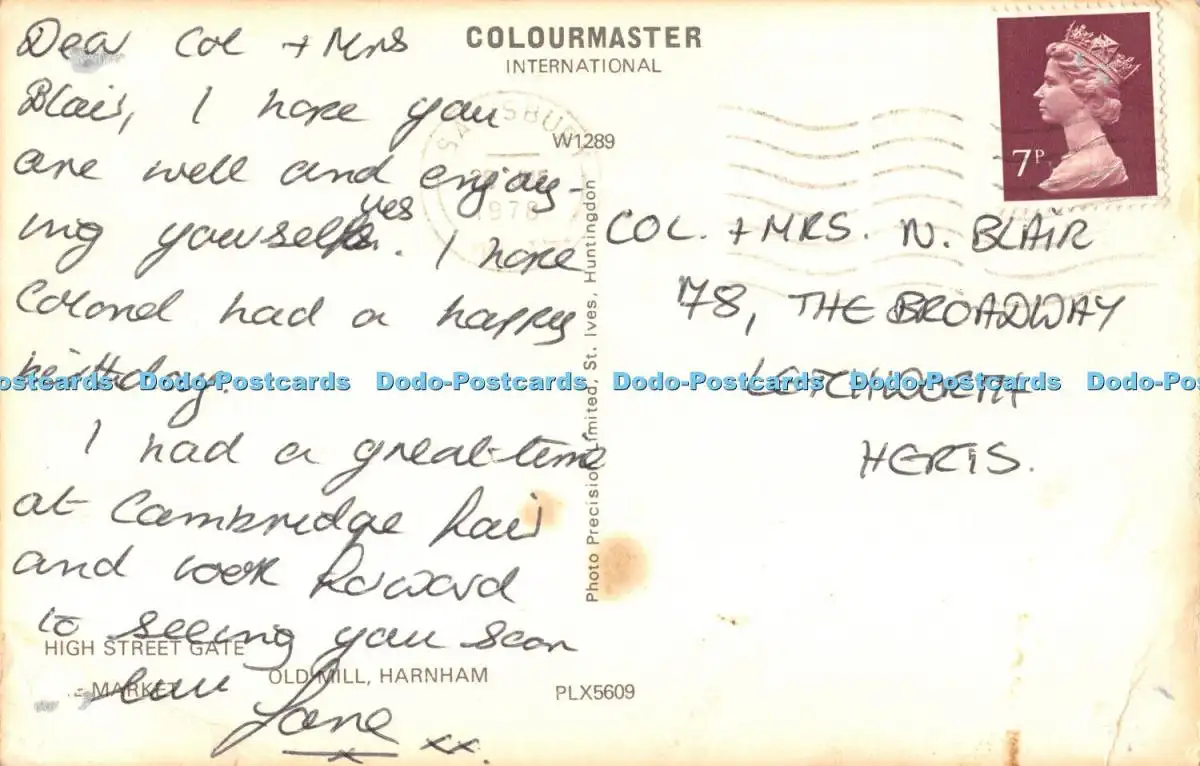 Dear Col + Mrs
Blair, I hope you
are well and enjoy-
ing yourselves. I hope
Colonel had a happy
birthday.
I had a great time
at Cambridge Fair
and look forward
to seeing you soon
love
Jane
x xx.
COLOURMASTER
INTERNATIONAL
W1289
SALISBURY
1978
7P
COL. + MRS. N. BLAIR
78, THE BROADWAY
LETCHWORTH
HERTS.
Photo Precision Limited, St. Ives, Huntingdon
HIGH STREET GATE
OLD MILL, HARNHAM
MARKET
PLX5609
Dodo-Postcards Dodo-Postcards Dodo-Postcards Dodo-Postcards Dodo-Po